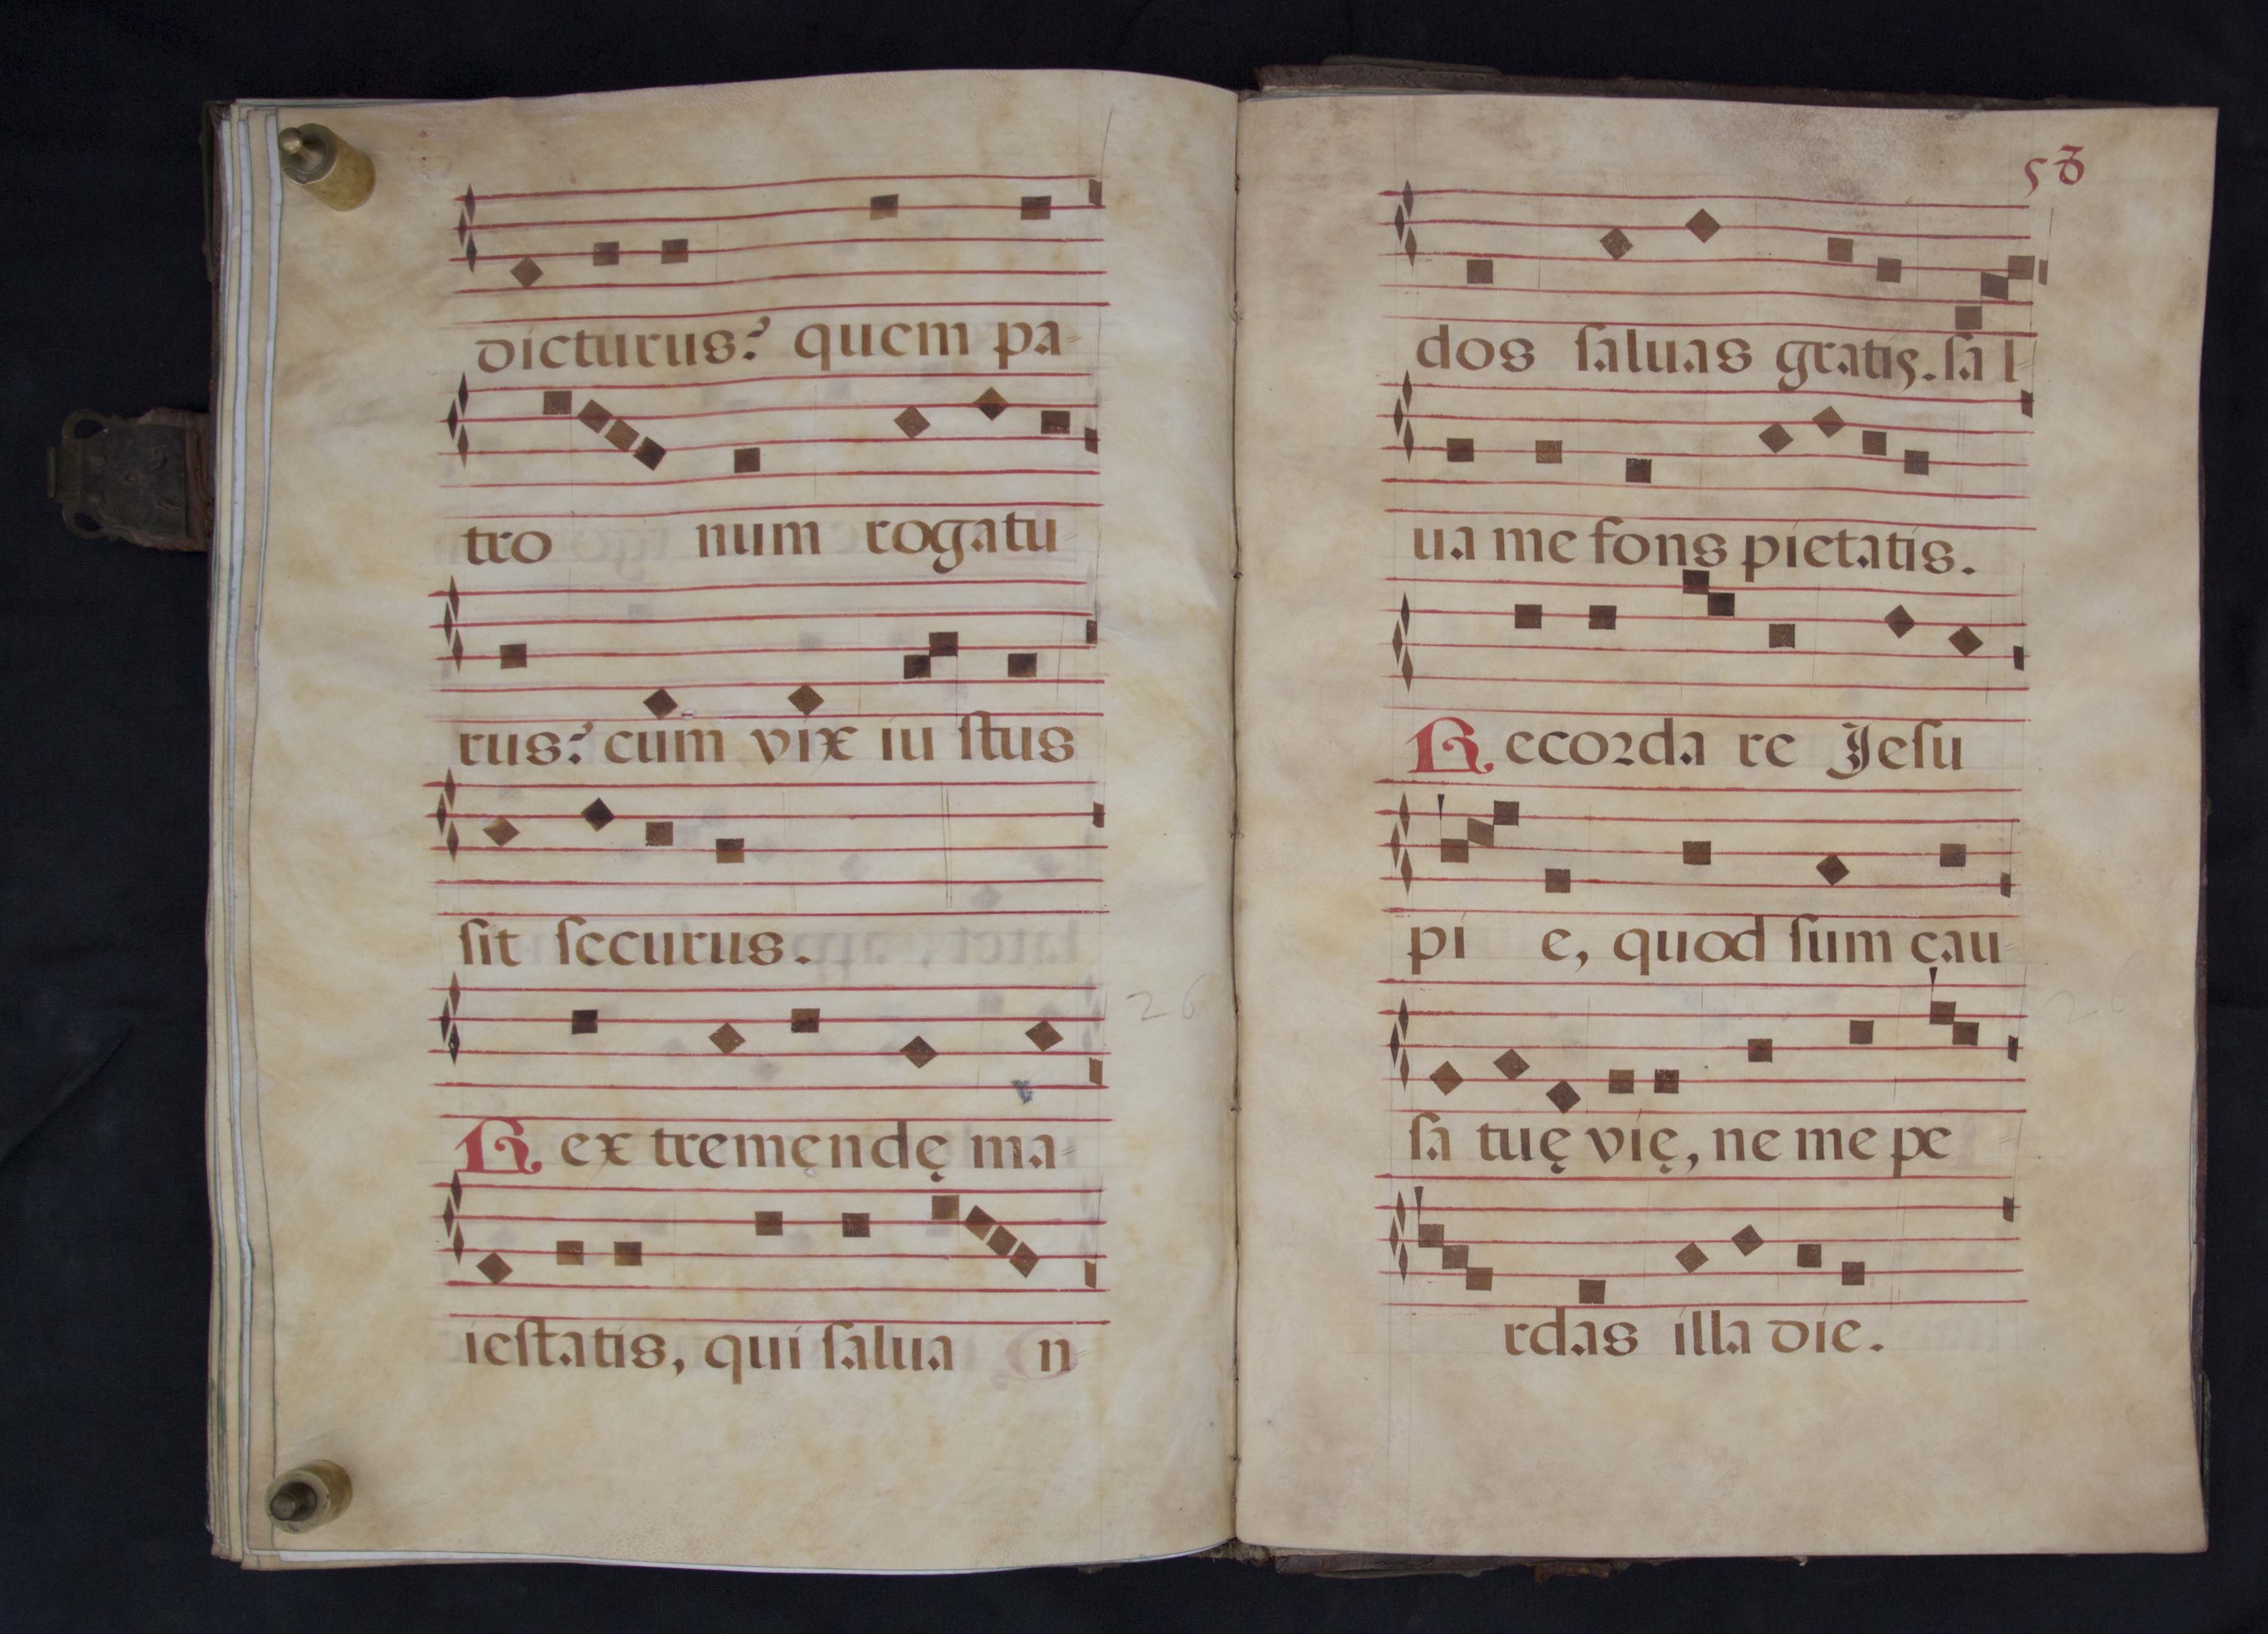 dicturus? quem pa-
tro num rogatu-
rus? cum vix iu stus
sit securus.
Rex tremęndę ma-
iestatis, qui salua n-
26
58
dos saluas gratis. sal-
ua me fons pietatis.
Recorda re Jesu
pi e, quod sum cau-
sa tuę vię, ne me pe-
rdas illa die.